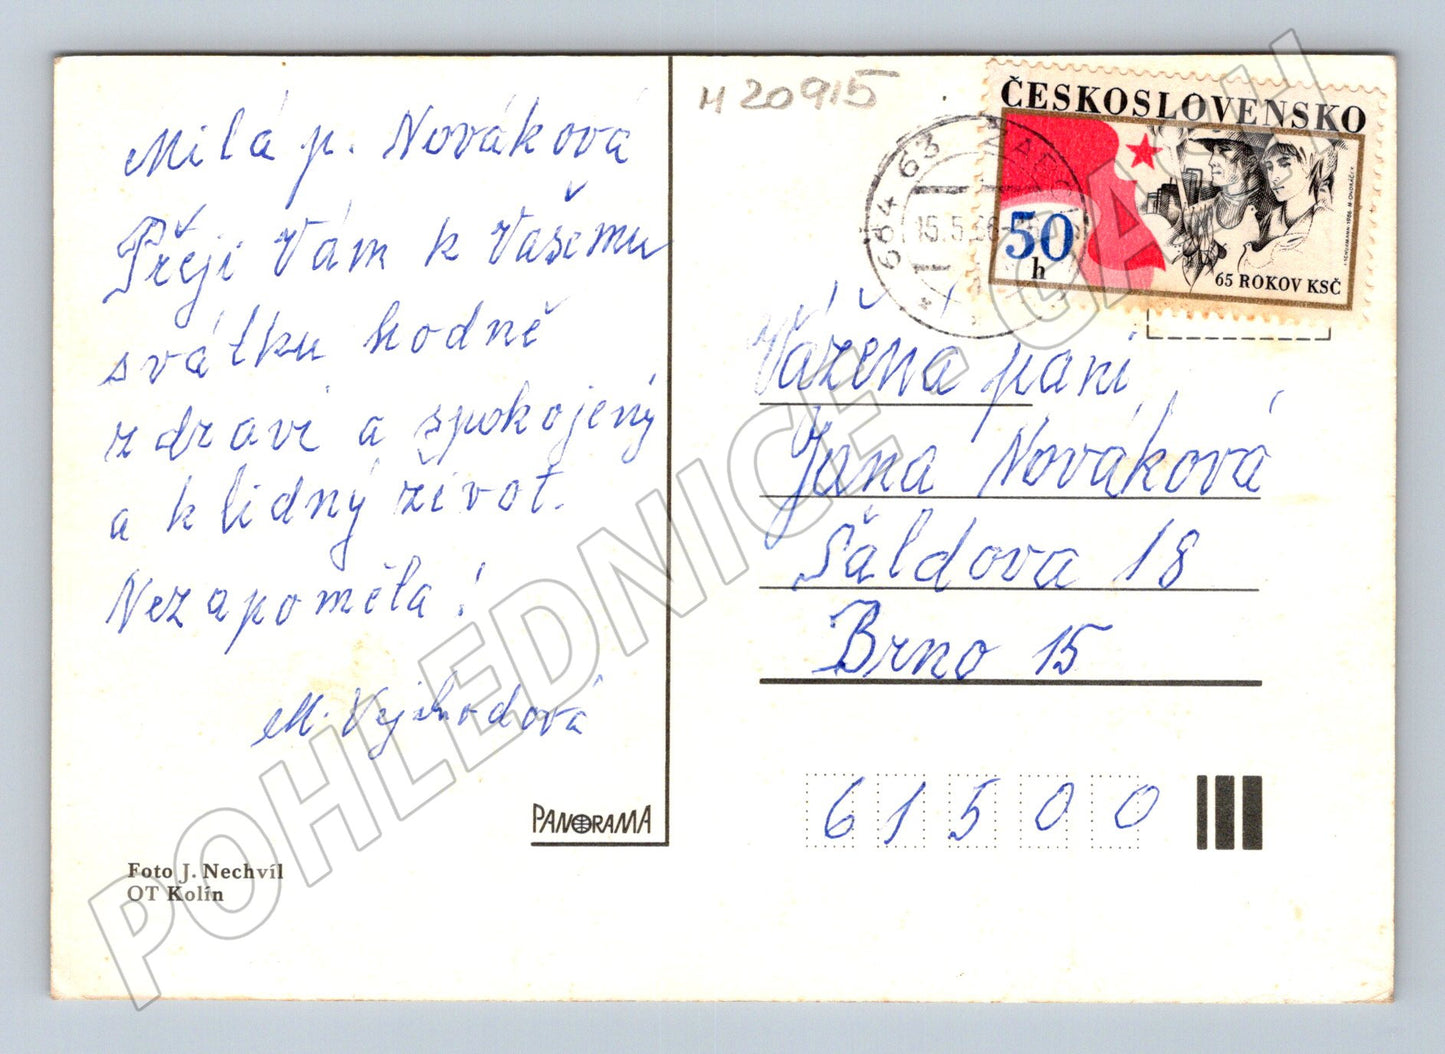 Milá p. Nováková
Přeji Vám k Vašemu
svátku hodně
zdraví a spokojený
a klidný život.
Nezapoměla!
M. Vychodová
PANORAMA
Foto J. Nechvíl
OT Kolín
H 20915
664 63
15.5.86
ČESKOSLOVENSKO
50
h
65 ROKOV KSČ
Vážená paní
Jana Nováková
Šaldova 18
Brno 15
61500
POHLEDNICE - CACH